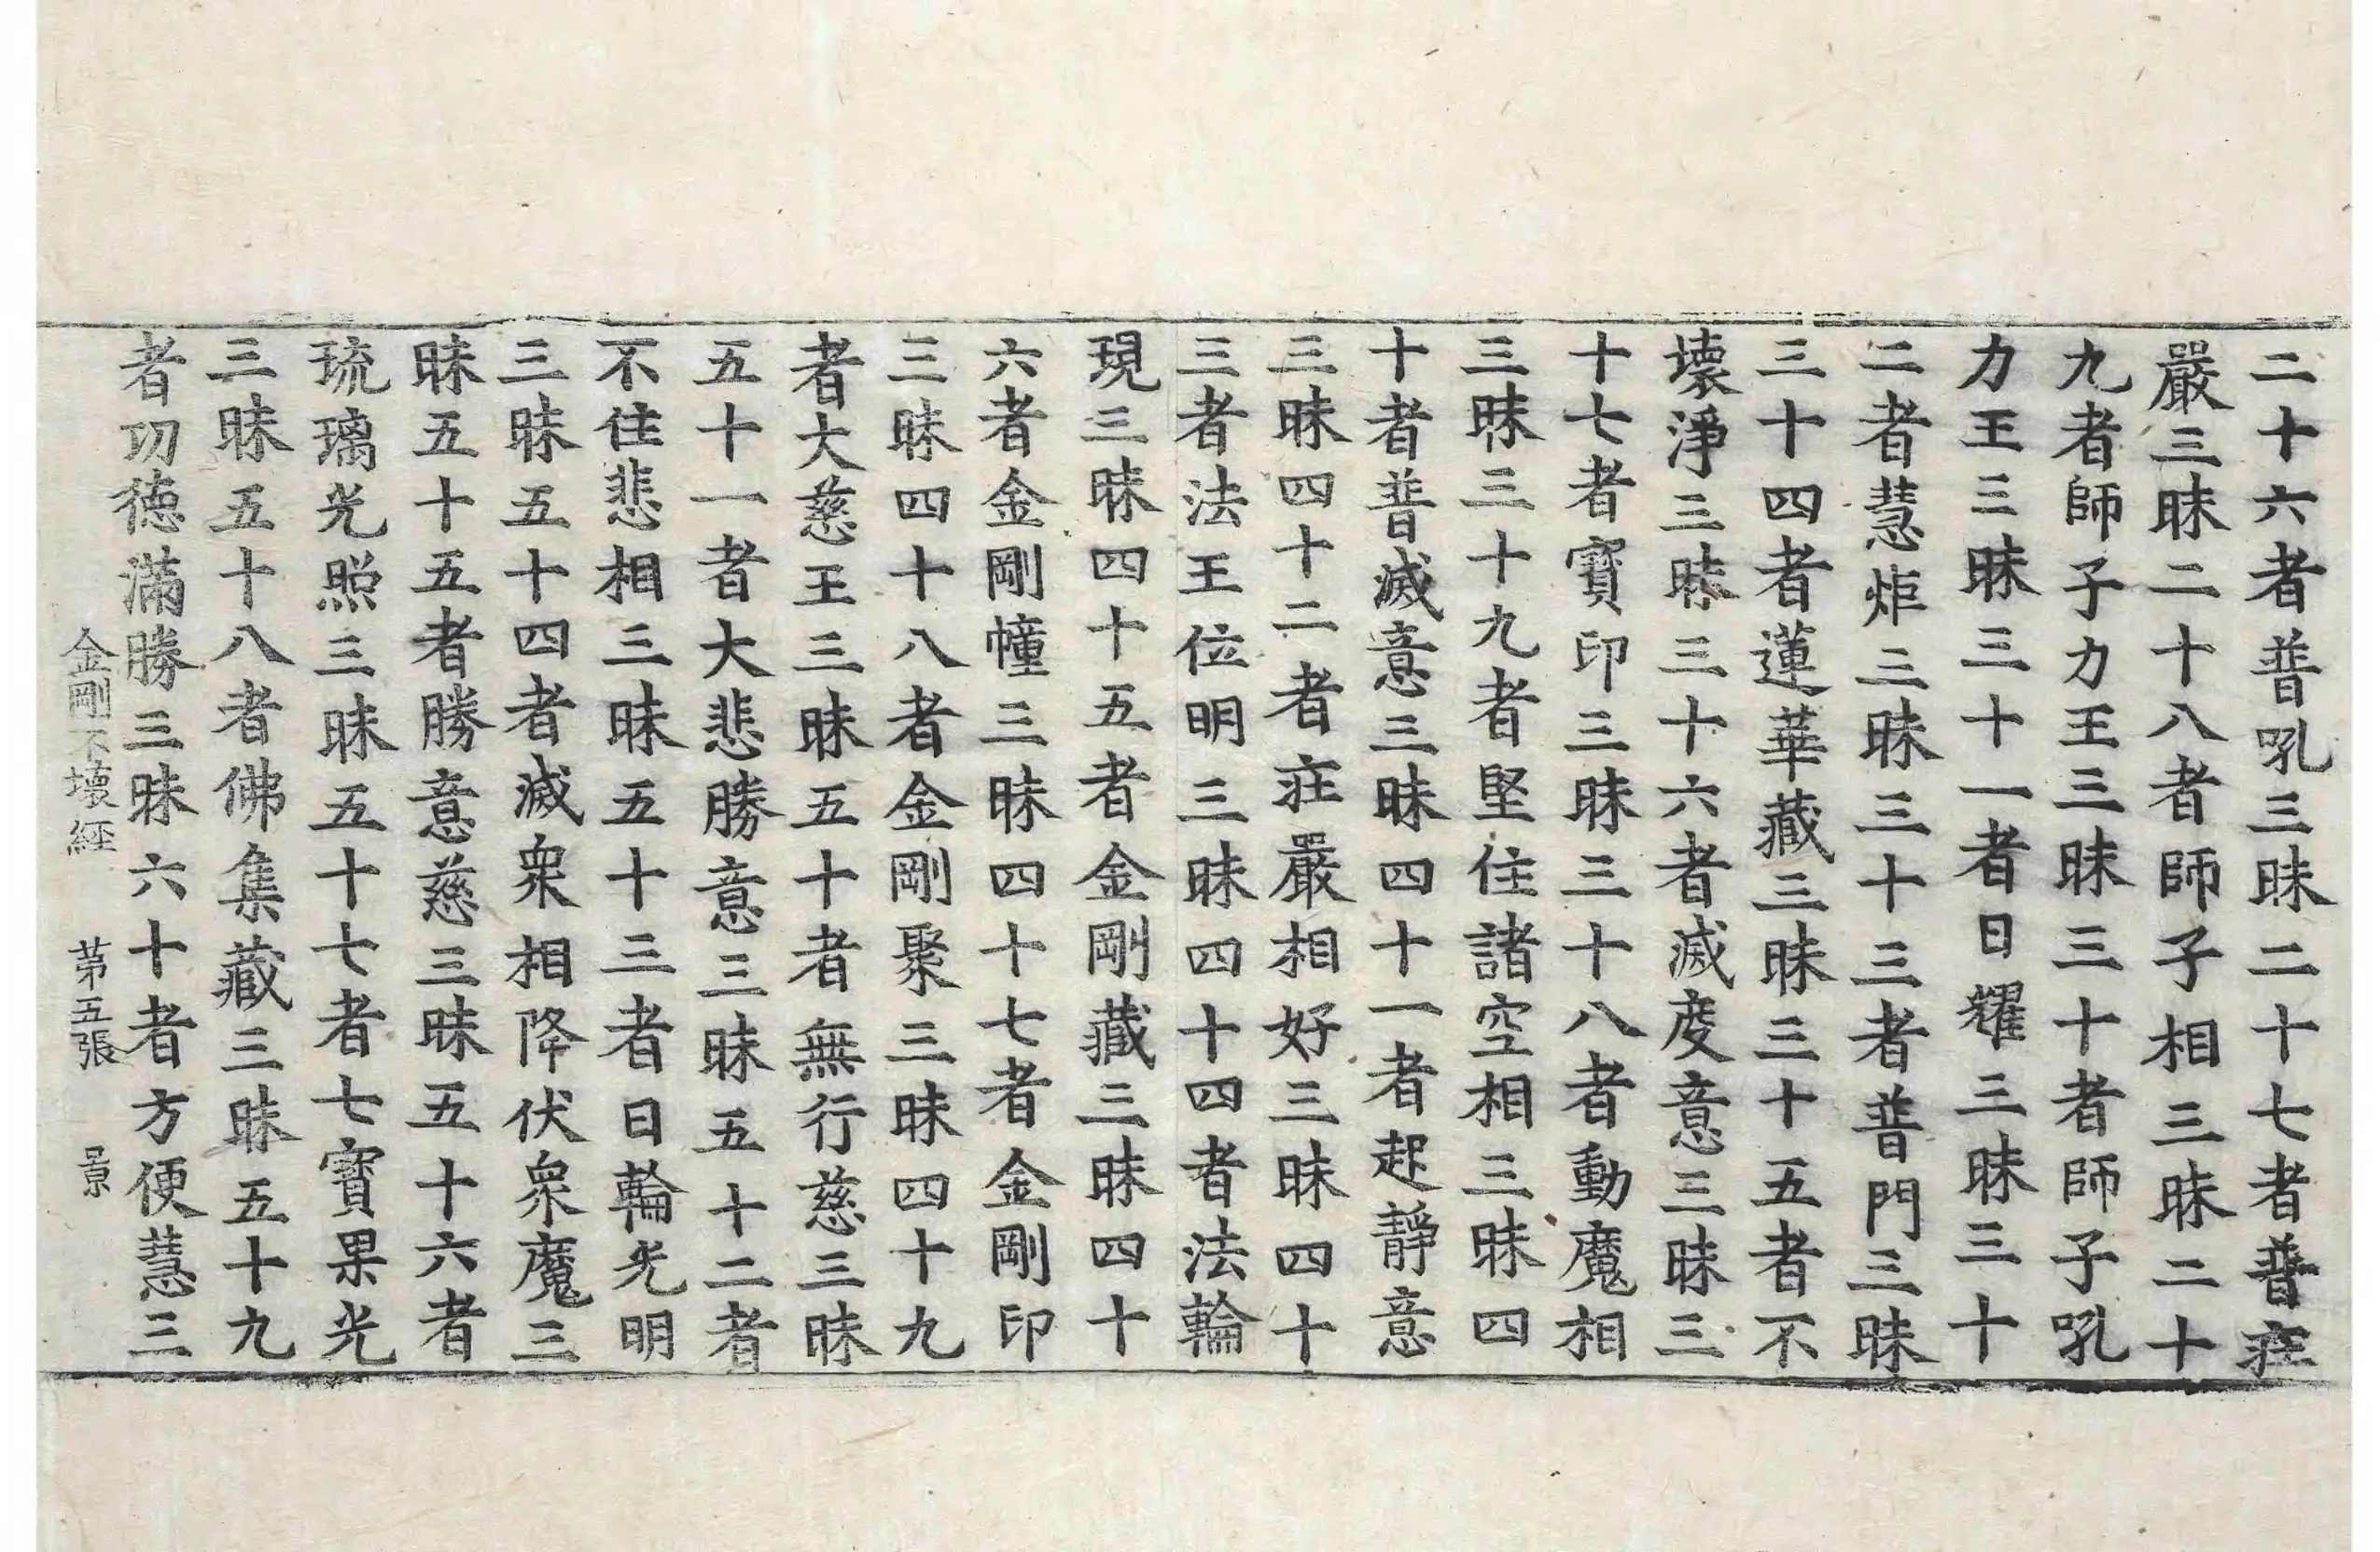 二十六者普吼三昧二十七者普荘
嚴三昧二十八者師子相三昧二十
九者師子力王三昧三十者師子吼
力王三昧三十一者日耀三昧三十
二者慧炬三昧三十三者普門三昧
三十四者蓮華藏三昧三十五者不
壊淨三昧三十六者滅度意三昧三
十七者寶印三昧三十八者動魔相
三昧三十九者堅住諸空相三昧四
十者普滅意三昧四十一者起靜意
三昧四十二者荘嚴相好三昧四十
三者法王位明三昧四十四者法輪
現三昧四十五者金剛藏三昧四十
六者金剛幢三昧四十七者金剛印
三昧四十八者金剛聚三昧四十九
者大慈王三昧五十者無行慈三昧
五十一者大悲勝意三昧五十二者
不住悲相三昧五十三者日輪光明
三昧五十四者滅衆相降伏衆魔三
昧五十五者勝意慈三昧五十六者
琉璃光照三昧五十七者七寶果光
三昧五十八者佛集藏三昧五十九
者功徳滿勝三昧六十者方便慧三
金剛不壊經 苐五張 景